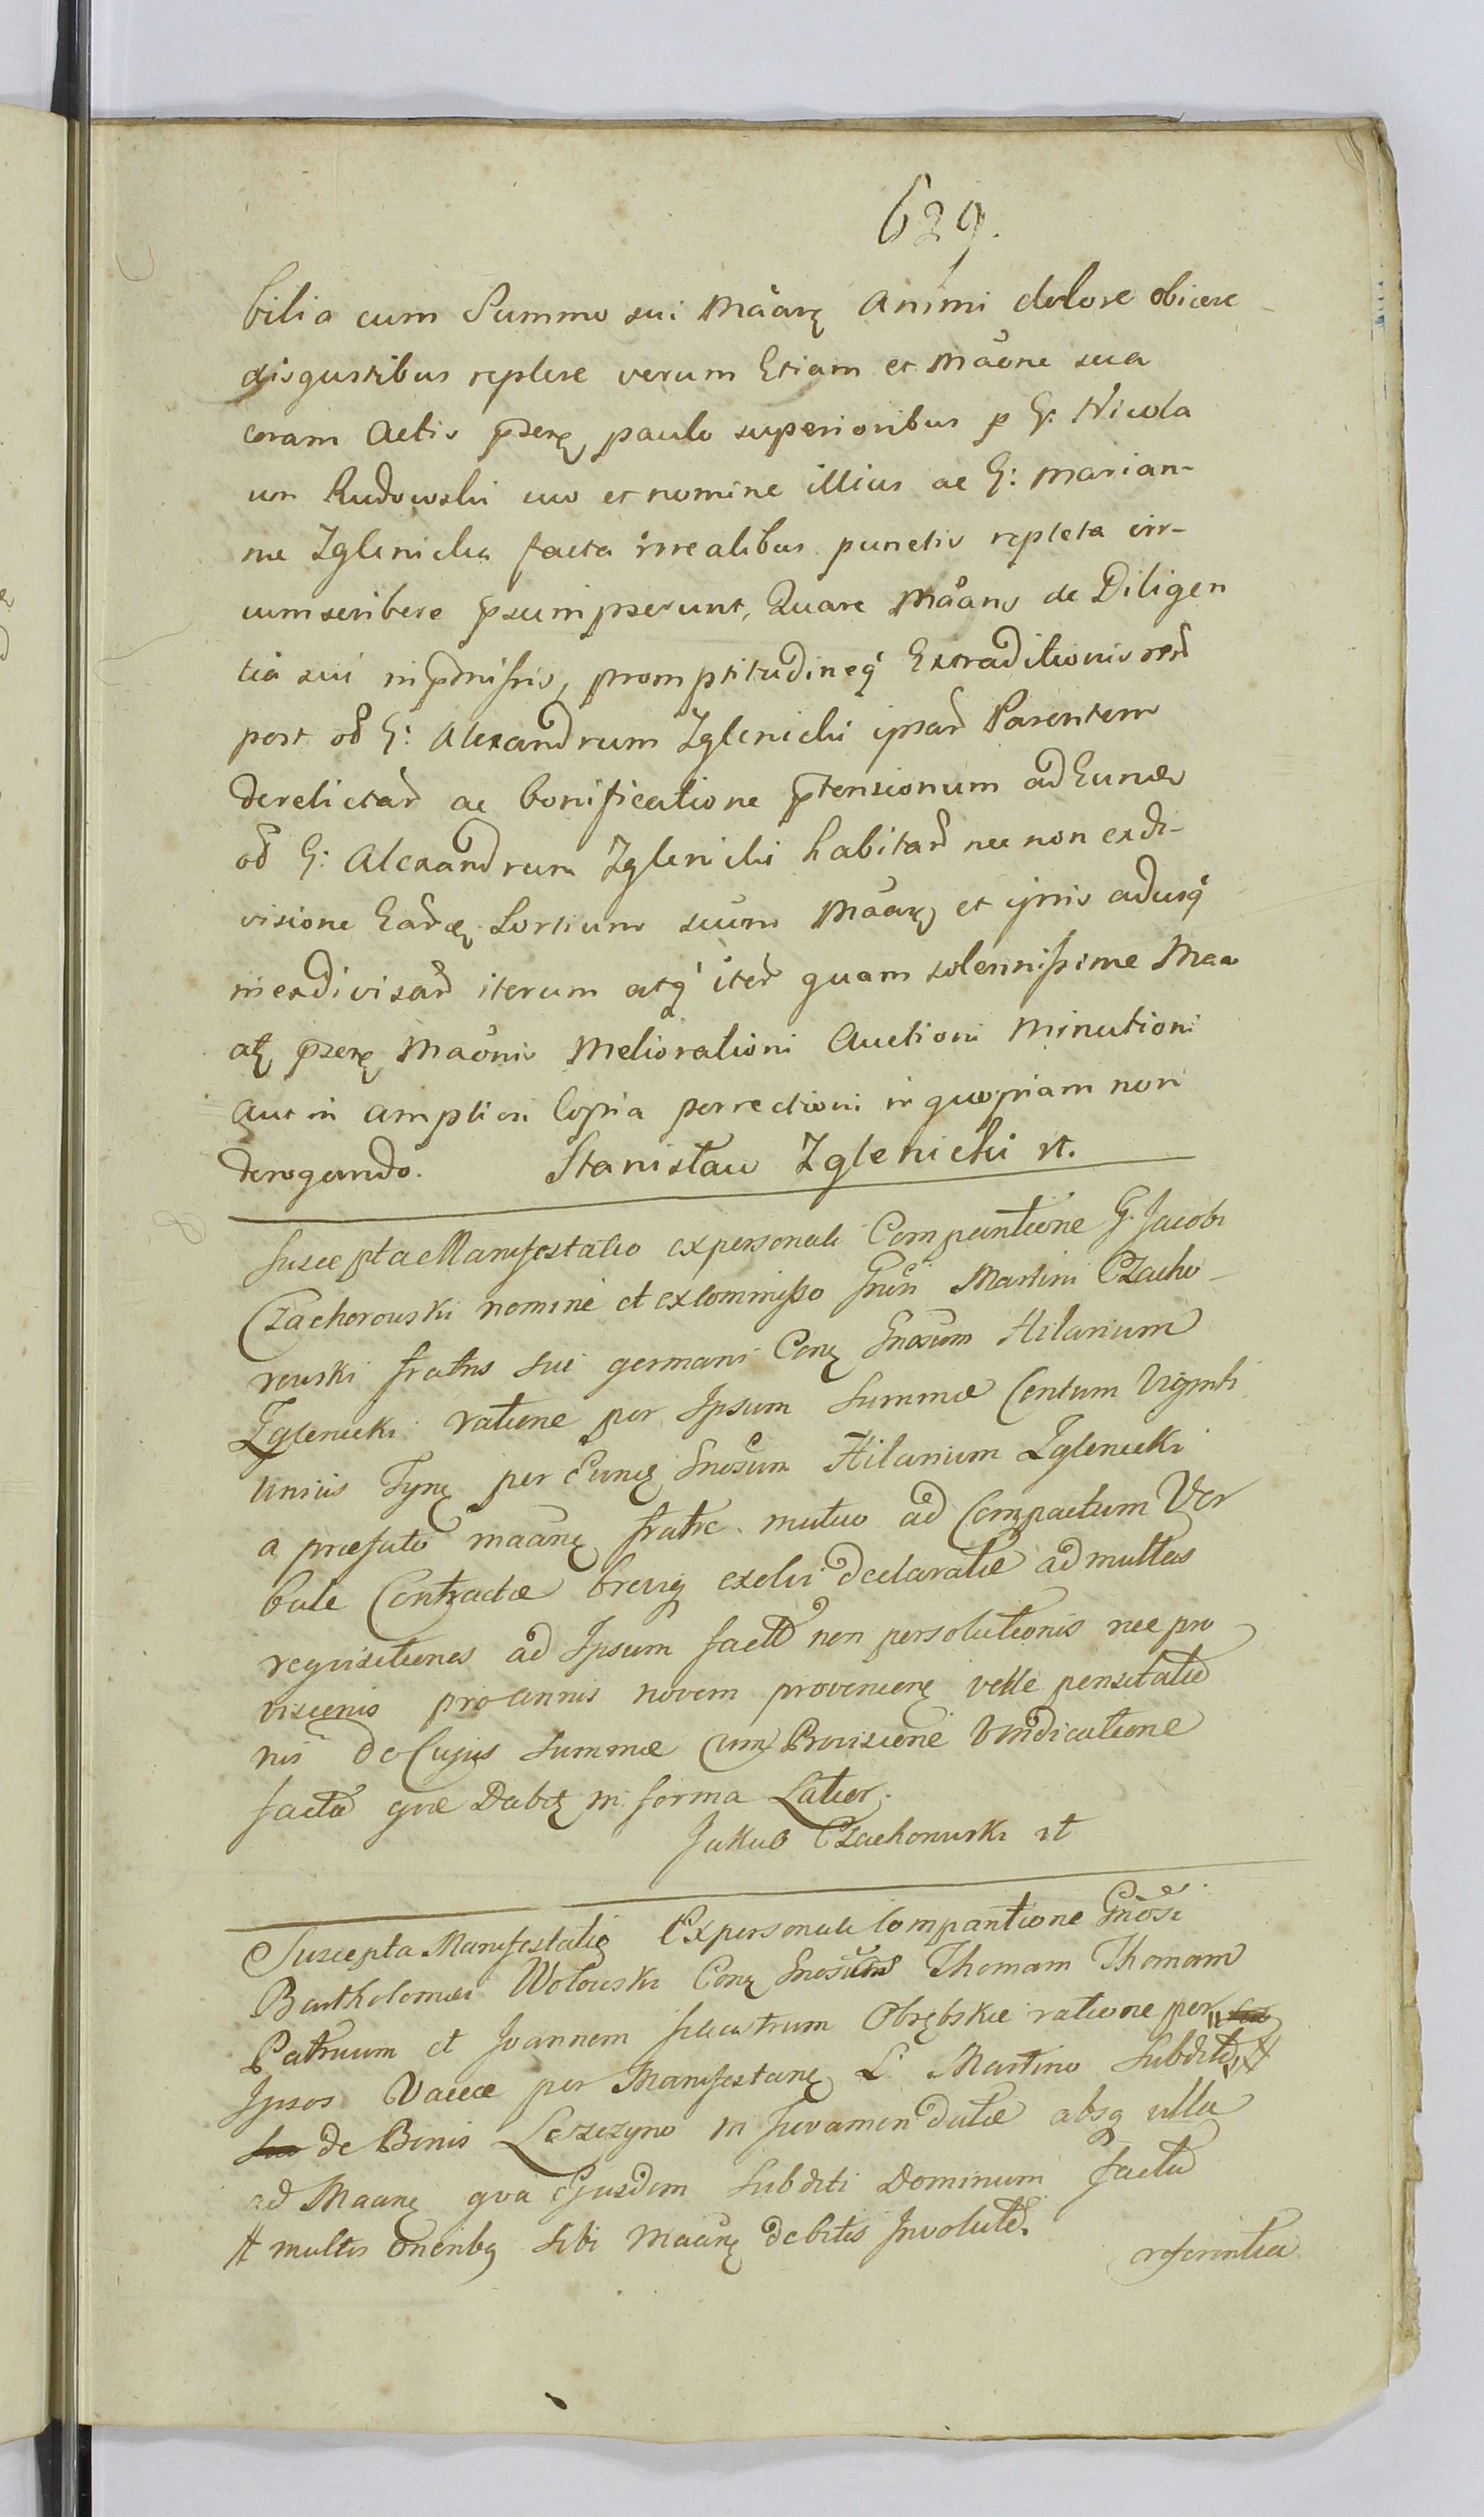 629.
bilia cum Summo sui Maarę Animi dolore obicere
disgustibus replere verum Etiam et Maone sua
coram Actis p̄serę paulo superioribus p G: Nicola
um Rudowski suo et nomine illius ac G: Marian-
nae Zglenicka facta irrealibus punctis repleta cir-
cumscribere p̄sumpserunt, Quare Maans de Diligen
tia sui in p̄missis, promptitudineq Extraditionis rerū
post od G: Alexandrum Zglenicki ipsar Parentem
derelictar ac bonificatione p̄tensionum ad Eund
od G: Alexandrum Zglenicki habitar nec non exdi-
visione Eardę Sortium suum Maarę et ipsis adusq
inexdivisar iterum atq iter quam solennissime Maa
atę p̄serę Maonis Meliorationi Auctioni Minutioni
Aut in ampliori Copia porrectioni in quopiam non
derogando. Stanisław Zglenicki rt.
Suscepta Manifestatio ex personali Comparitione G. Jacobi
Czachorouski nomine et ex Commisso Gnosi Martini Czacho-
rouski fratris sui germani Conę Gnosum Hilarium
Zglenicki ratione per Ipsum Summae Centum Viginti
Unius Tynę per Eundę Gnosum Hilarium Zglenicki
a praefato maanę fratre mutuo ad Compactum Ver
bale Contractae breviq exolvi declaratae ad multas
requisitiones ad Ipsum factas non persolutionis nec pro
visionis pro Annis novem provenienę velle pensitatio
nis de Cujus Summae cum Provisione Vindicatione
facta quae Dabitę in forma Latior.
Jakub Czachorouski rt
Suscepta Manifestatio Ex personali Comparitione Gnosi
Bartholomaei Wolouski Conę Gnosum Thomam Thomam
Patruum et Joannem filiastrum Obrębskie ratione per
Ipsos Vaccae per Manifestanę L. Martino Subdito #
suo de Bonis Leszczyno in Juvamen datae absq ulla
ad Maanę qua Ejusdem Subditi Dominum facta
# multis oneribq sibi Maanę debitis Involuto.
referentia